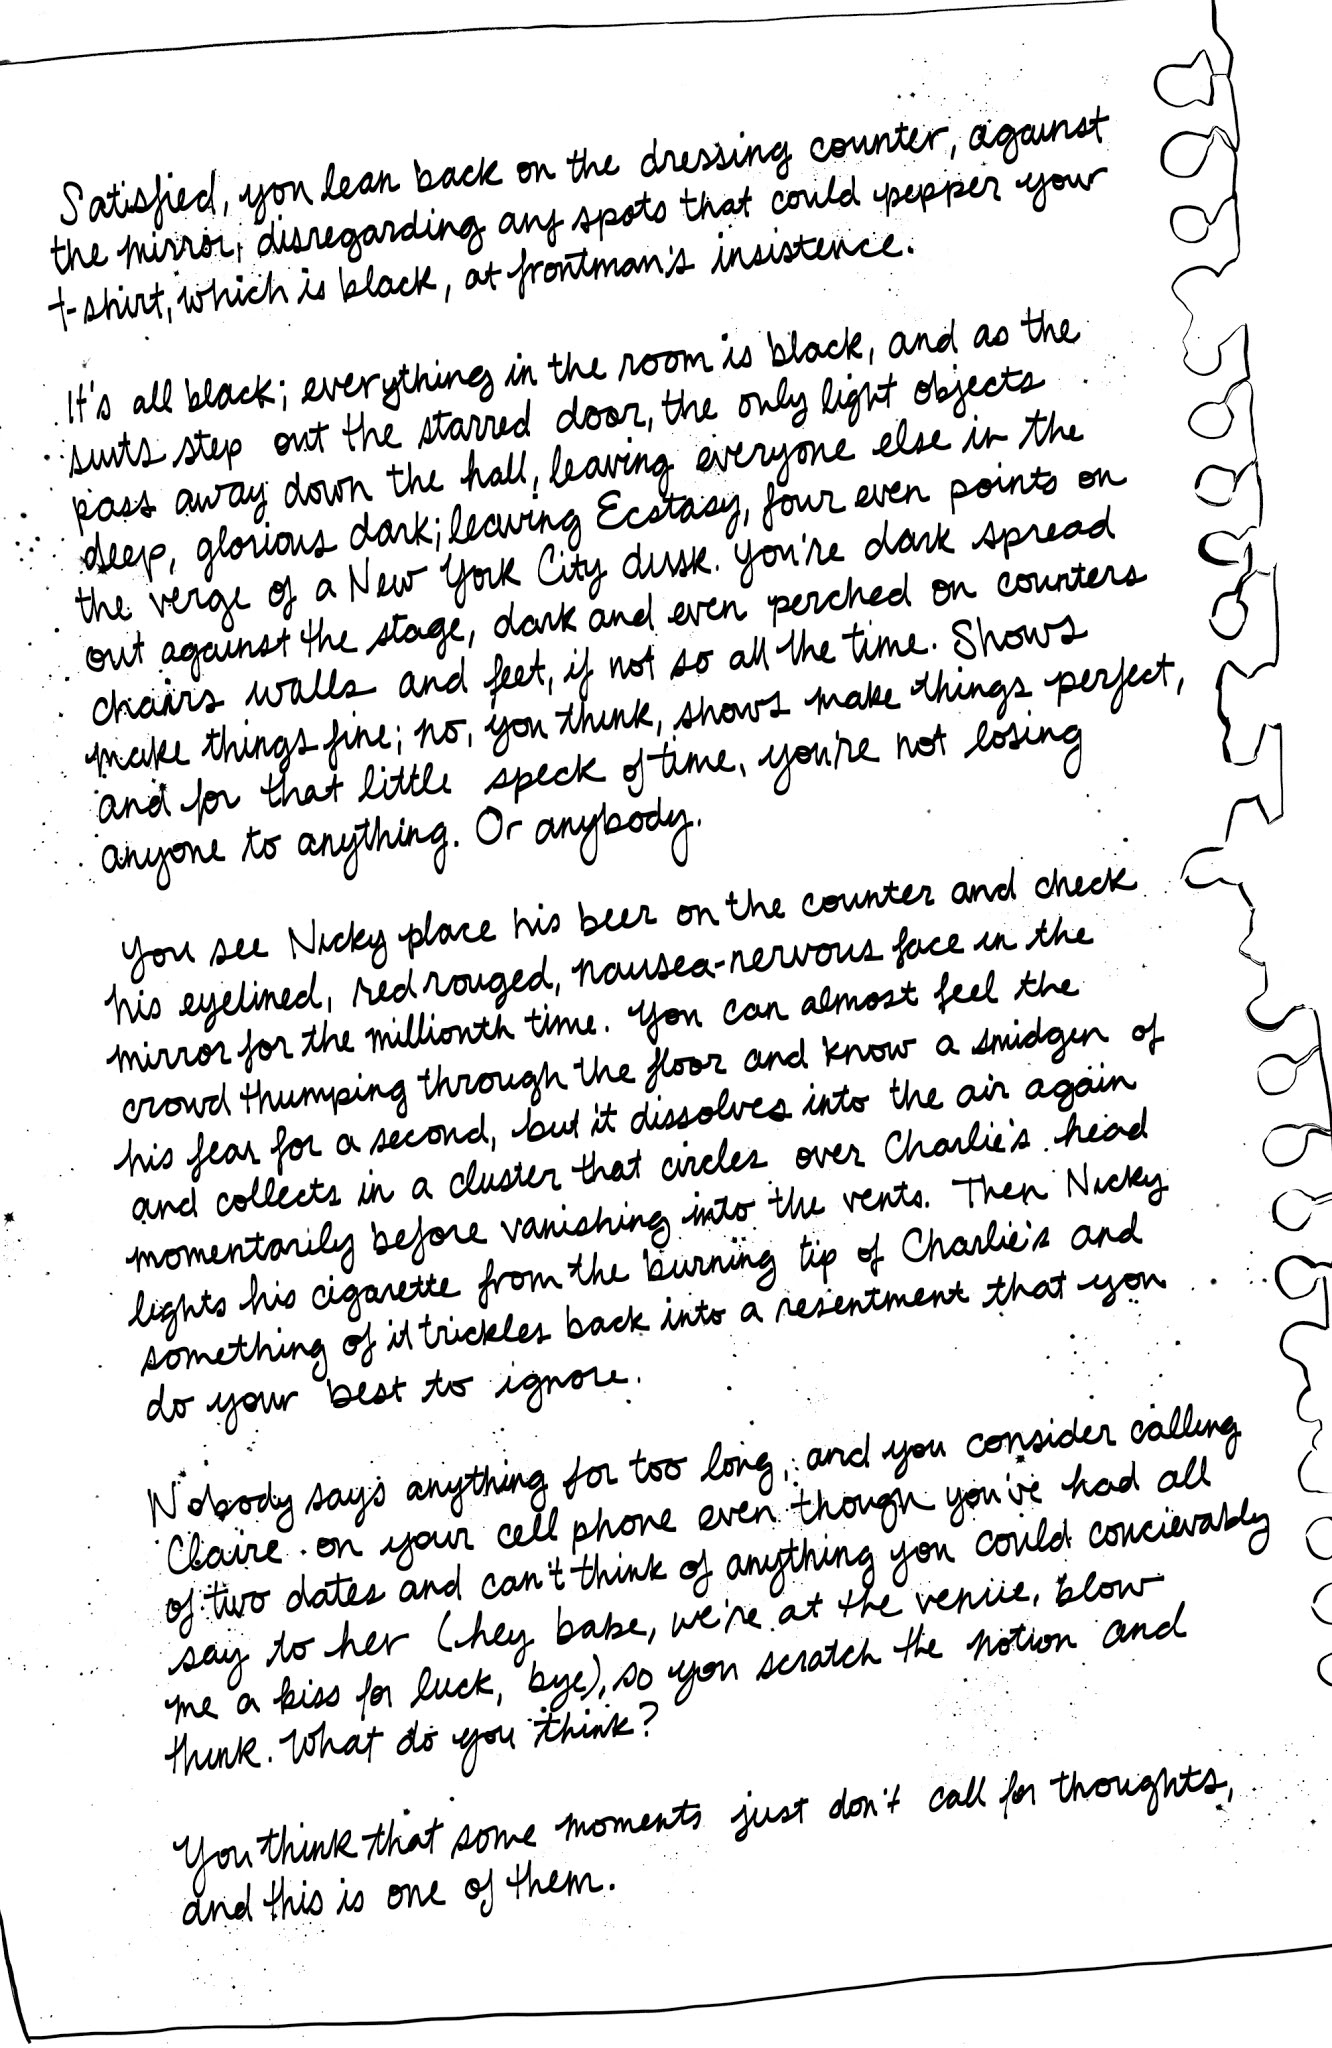 Satisfied, you lean back on the dressing counter, against
the mirror, disregarding any spots that could pepper your
t-shirt, which is black, at frontman's insistence.
It's all black; everything in the room is black, and as the
suits step out the starred door, the only light objects
pass away down the hall, leaving everyone else in the
deep, glorious dark; leaving Ecstasy, four even points on
the verge of a New York City dusk. You're dark spread
out against the stage, dark and even perched on counters
chairs walls and feet, if not so all the time. Shows
make things fine; no, you think, shows make things perfect,
and for that little speck of time, you're not losing
anyone to anything. Or anybody.
You see Nicky place his beer on the counter and check
his eyelined, red rouged, nausea-nervous face in the
mirror for the millionth time. You can almost feel the
crowd thumping through the floor and know a smidgen of
his fear for a second, but it dissolves into the air again
and collects in a cluster that circles over Charlie's head
momentarily before vanishing into the vents. Then Nicky
lights his cigarette from the burning tip of Charlie's and
something of it trickles back into a resentment that you
do your best to ignore.
Nobody says anything for too long, and you consider calling
Claire on your cell phone even though you've had all
of two dates and can't think of anything you could concievably
say to her (hey babe, we're at the venue, blow
me a kiss for luck, bye), so you scratch the notion and
think. What do you think?
You think that some moments just don't call for thoughts,
and this is one of them.